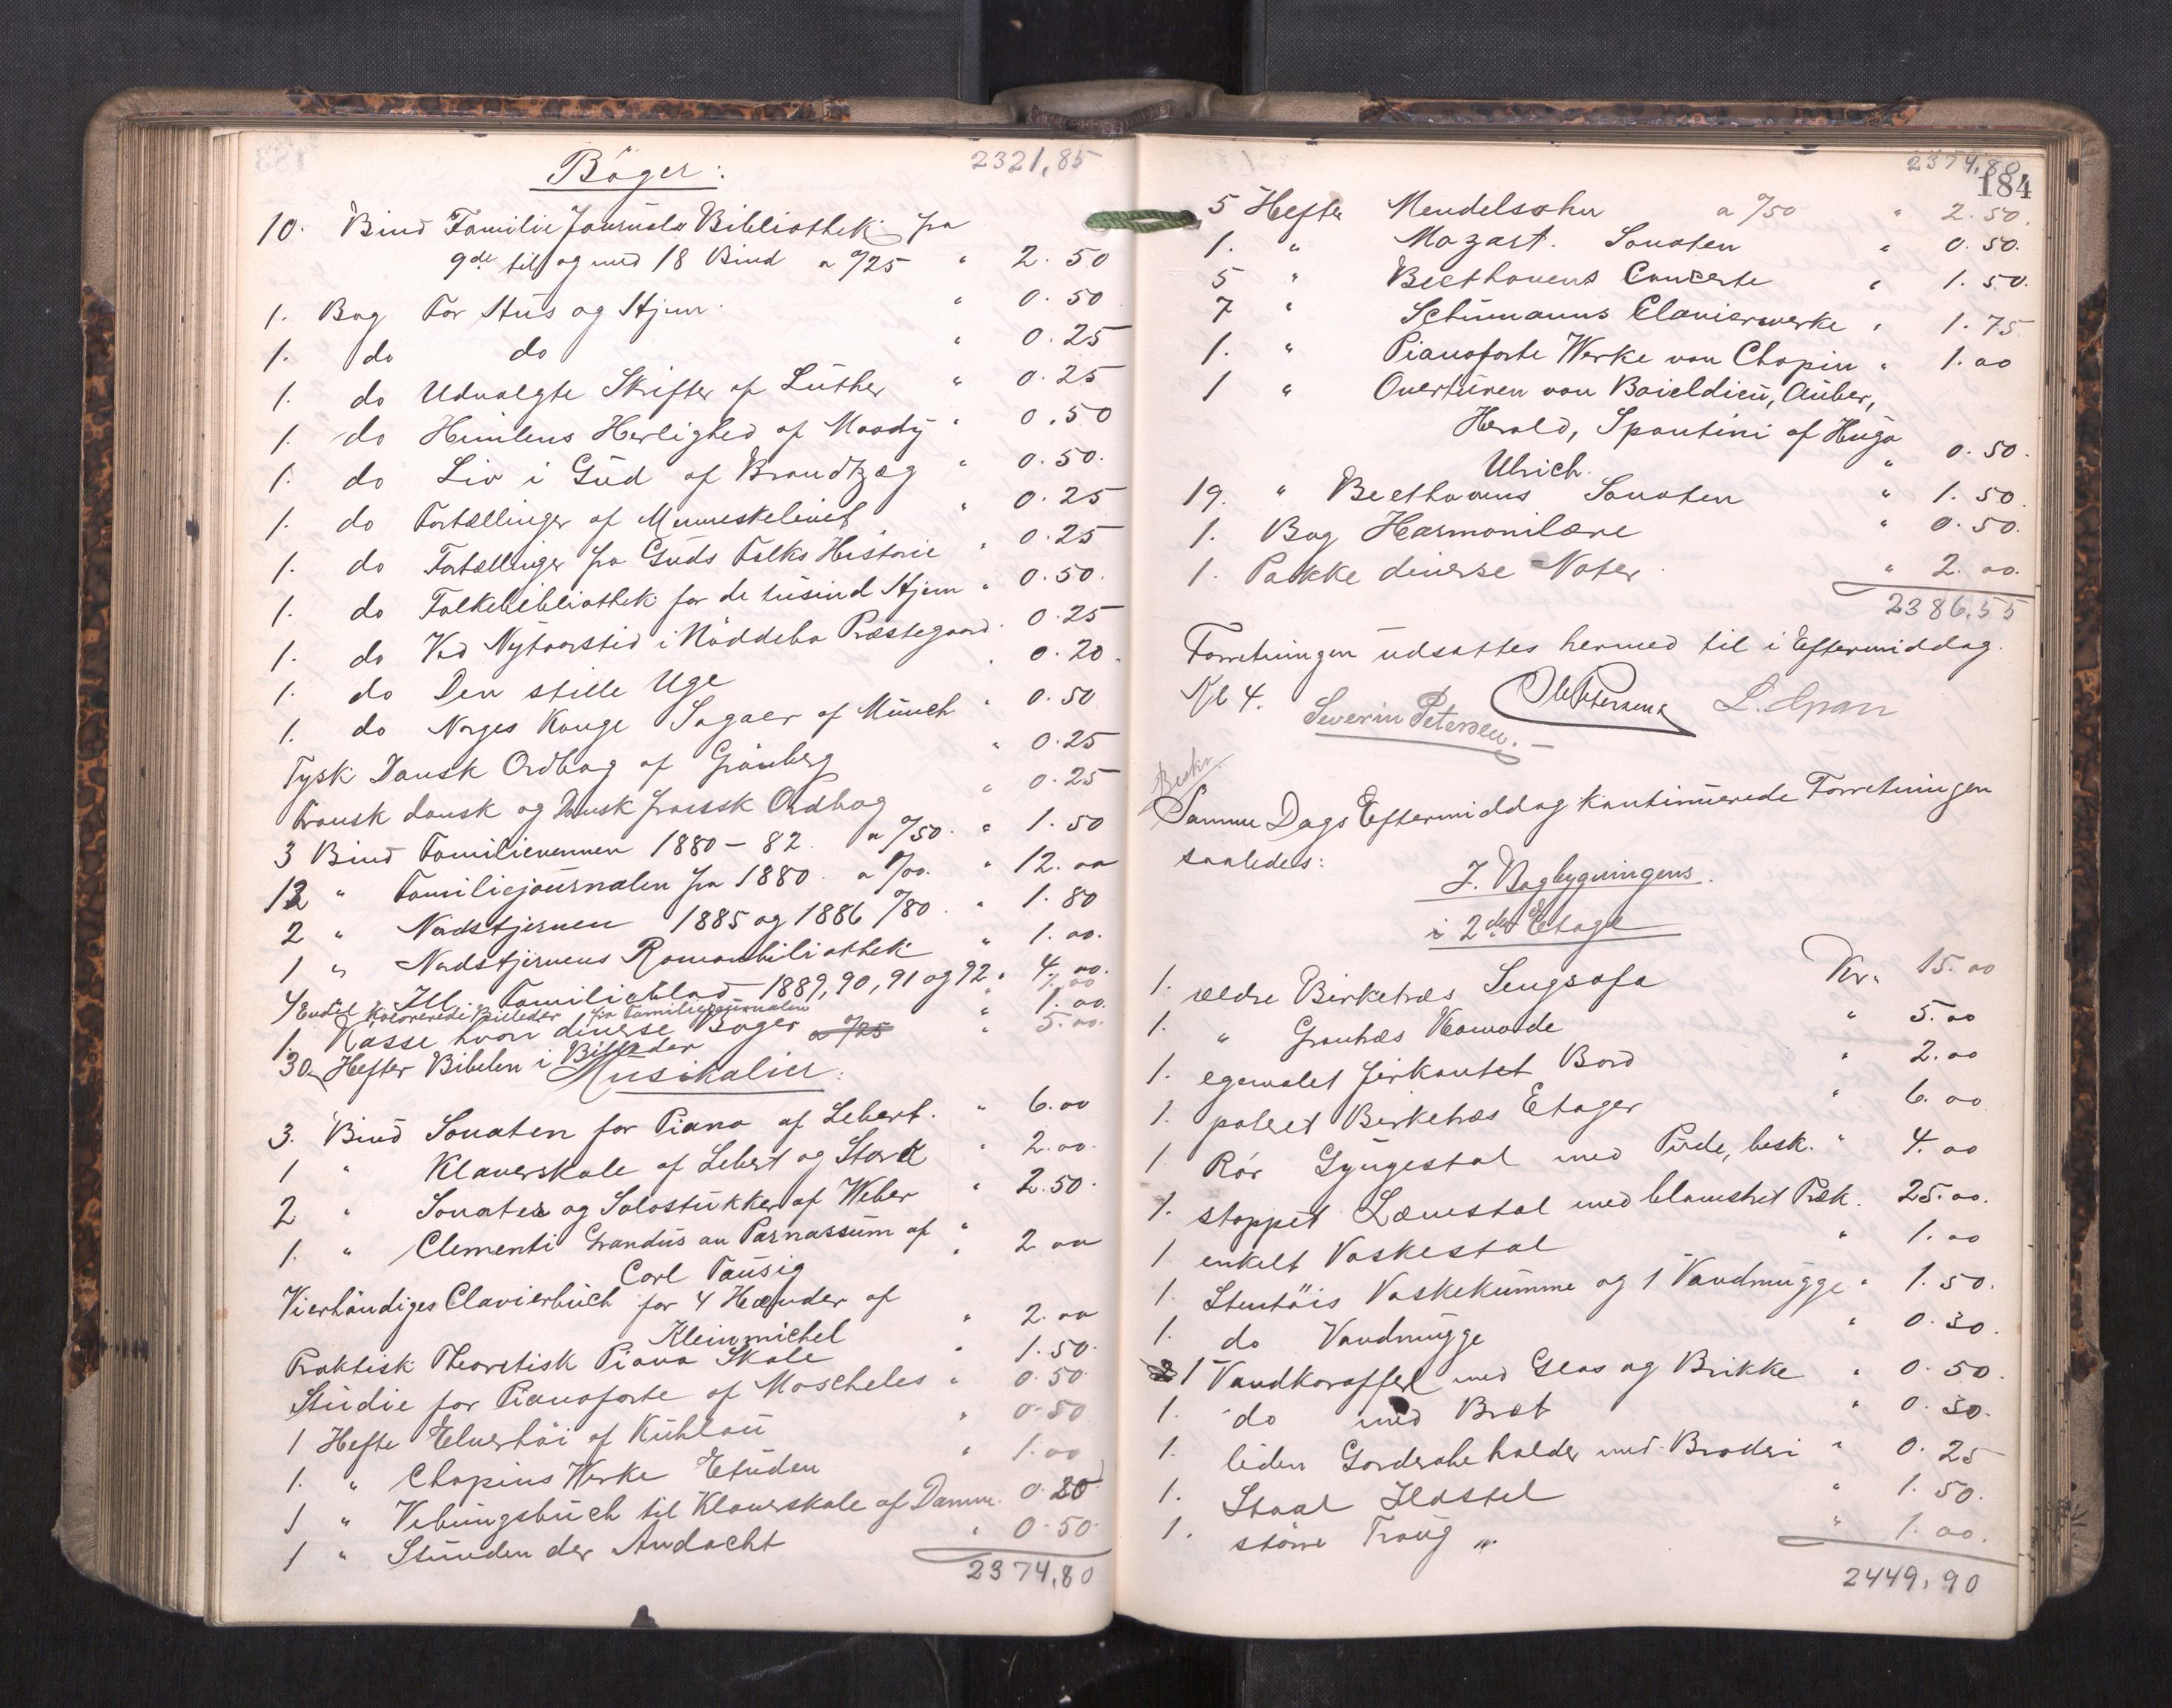 Bøger:
2321,85
10. Bind Familie Journals Bibliothek fra
9de til og med 18 Bind a 0/25 " 2.50
1. Bog For Hus og Hjem. " 0.50
1. do do " 0.25
1. do Udvalgte Skrifter af Luther " 0.25
1. do Himlens Herlighed af Moody " 0.50
1. do Liv i Gud af Brandtzæg " 0.50.
1. do Fortællinger af Menneskelivet " 0.25
1. do Fortællinger fra Guds Folks Historie " 0.25
1. do Folkebibliothek for de tusind Hjem " 0.50.
1. do Ved Nytaarstid i Nøddebo Præstegaard. 0.25
1. do Den stille Uge " 0.20.
1. do Norges Konge Sagaer af Munch " 0.50
Tysk Dansk Ordbog af Grønberg " 0.25
Fransk dansk og Dansk fransk Ordbog " 0.25
3 Bind Familievennen 1880-82. a 0/50. " 1.50
12 " Familiejournalen fra 1880. a 1/00. " 12.00
2 " Nordstjernen 1885 og 1886 0/80. " 1.80
1 " Nordstjernens Romanbibliothek " 1.00.
4 Ill. Familieblad 1889, 90, 91 og 92. " 4.00.
Endel kolorerede Billeder fra Familiejournalen " 1.00
1. Kasse hvori diverse Bøger a 0/25 " 1.00.
30 Hefter Bibelen i Billeder " 5.00.
Musikalier:
3. Bind Sonaten for Piano af Lebert. " 6.00
1 " Klaverskole af Lebert og Stark " 2.00.
2 " Sonater og Solostukker af Weber " 2.50.
1. " Clementi Grandus an Parnassum af "
Carl Tausig " 2.00
Vierhändiges Clavierbuch for 4 Hænder af
Kleinmichel " 2.00
Praktisk Theoretisk Piano Skole " 1.50.
Studie for Pianoforte af Moscheles " 0.50
1 Hefte Elverhøi af Kuhlau " 0.50
1. " Chopins Werke Etuden " 1.00
1 " Uebungsbuch til Klaverskole af Damm. 0.80
1 " Stunden der Andacht " 0.50.
2374,80
2374,80
184
5 Hefter Mendelsohn a 0/50 " 2.50.
1. " Mozart. Sonaten " 0.50.
5 " Beethovens Concerte " 1.50.
7 " Schumanns Clavierwerke " 1.75
1. " Pianoforte Werke von Chopin " 1.00
1 " Overturen von Boieldieu, Auber,
Herold, Spontini af Hugo
Ulrich. " 0.50.
19. " Beethovens Sonaten " 1.50.
1. Bog Harmonilære " 0.50.
1. Pakke diverse Noter. " 2.00.
2386.55
Forretningen udsattes hermed til i Eftermiddag.
Kl 4. Severin Petersen.
Samme Dags Eftermiddag kontinuerede Forretningen
saaledes:
I. Bagbygningens.
i 2den Etage
1. ældre Birketræs Sengsofa Kr. 15.00
1. " Grantræs Komode " 5.00
1. egemalet firkantet Bord " 2.00
1. poleret Birketræs Etager " 6.00
1 Rør Gyngestol med Pude, besk. " 4.00
1. stoppet Lænestol med blomstret Træk. 25.00.
1 enkelt Vaskestol " 1.00
1. Stentøis Vaskekumme og 1 Vandmugge " 1.50.
1. do Vandmugge " 0.30.
1 Vandkaraffel med Glas og Brikke " 0.50.
1. do med Bræt " 0.30.
1. liden Garderobeholder med Broderi " 0.25
1. Staal Ildstel " 1.50.
1. større Traug " " 1.00.
2449,90